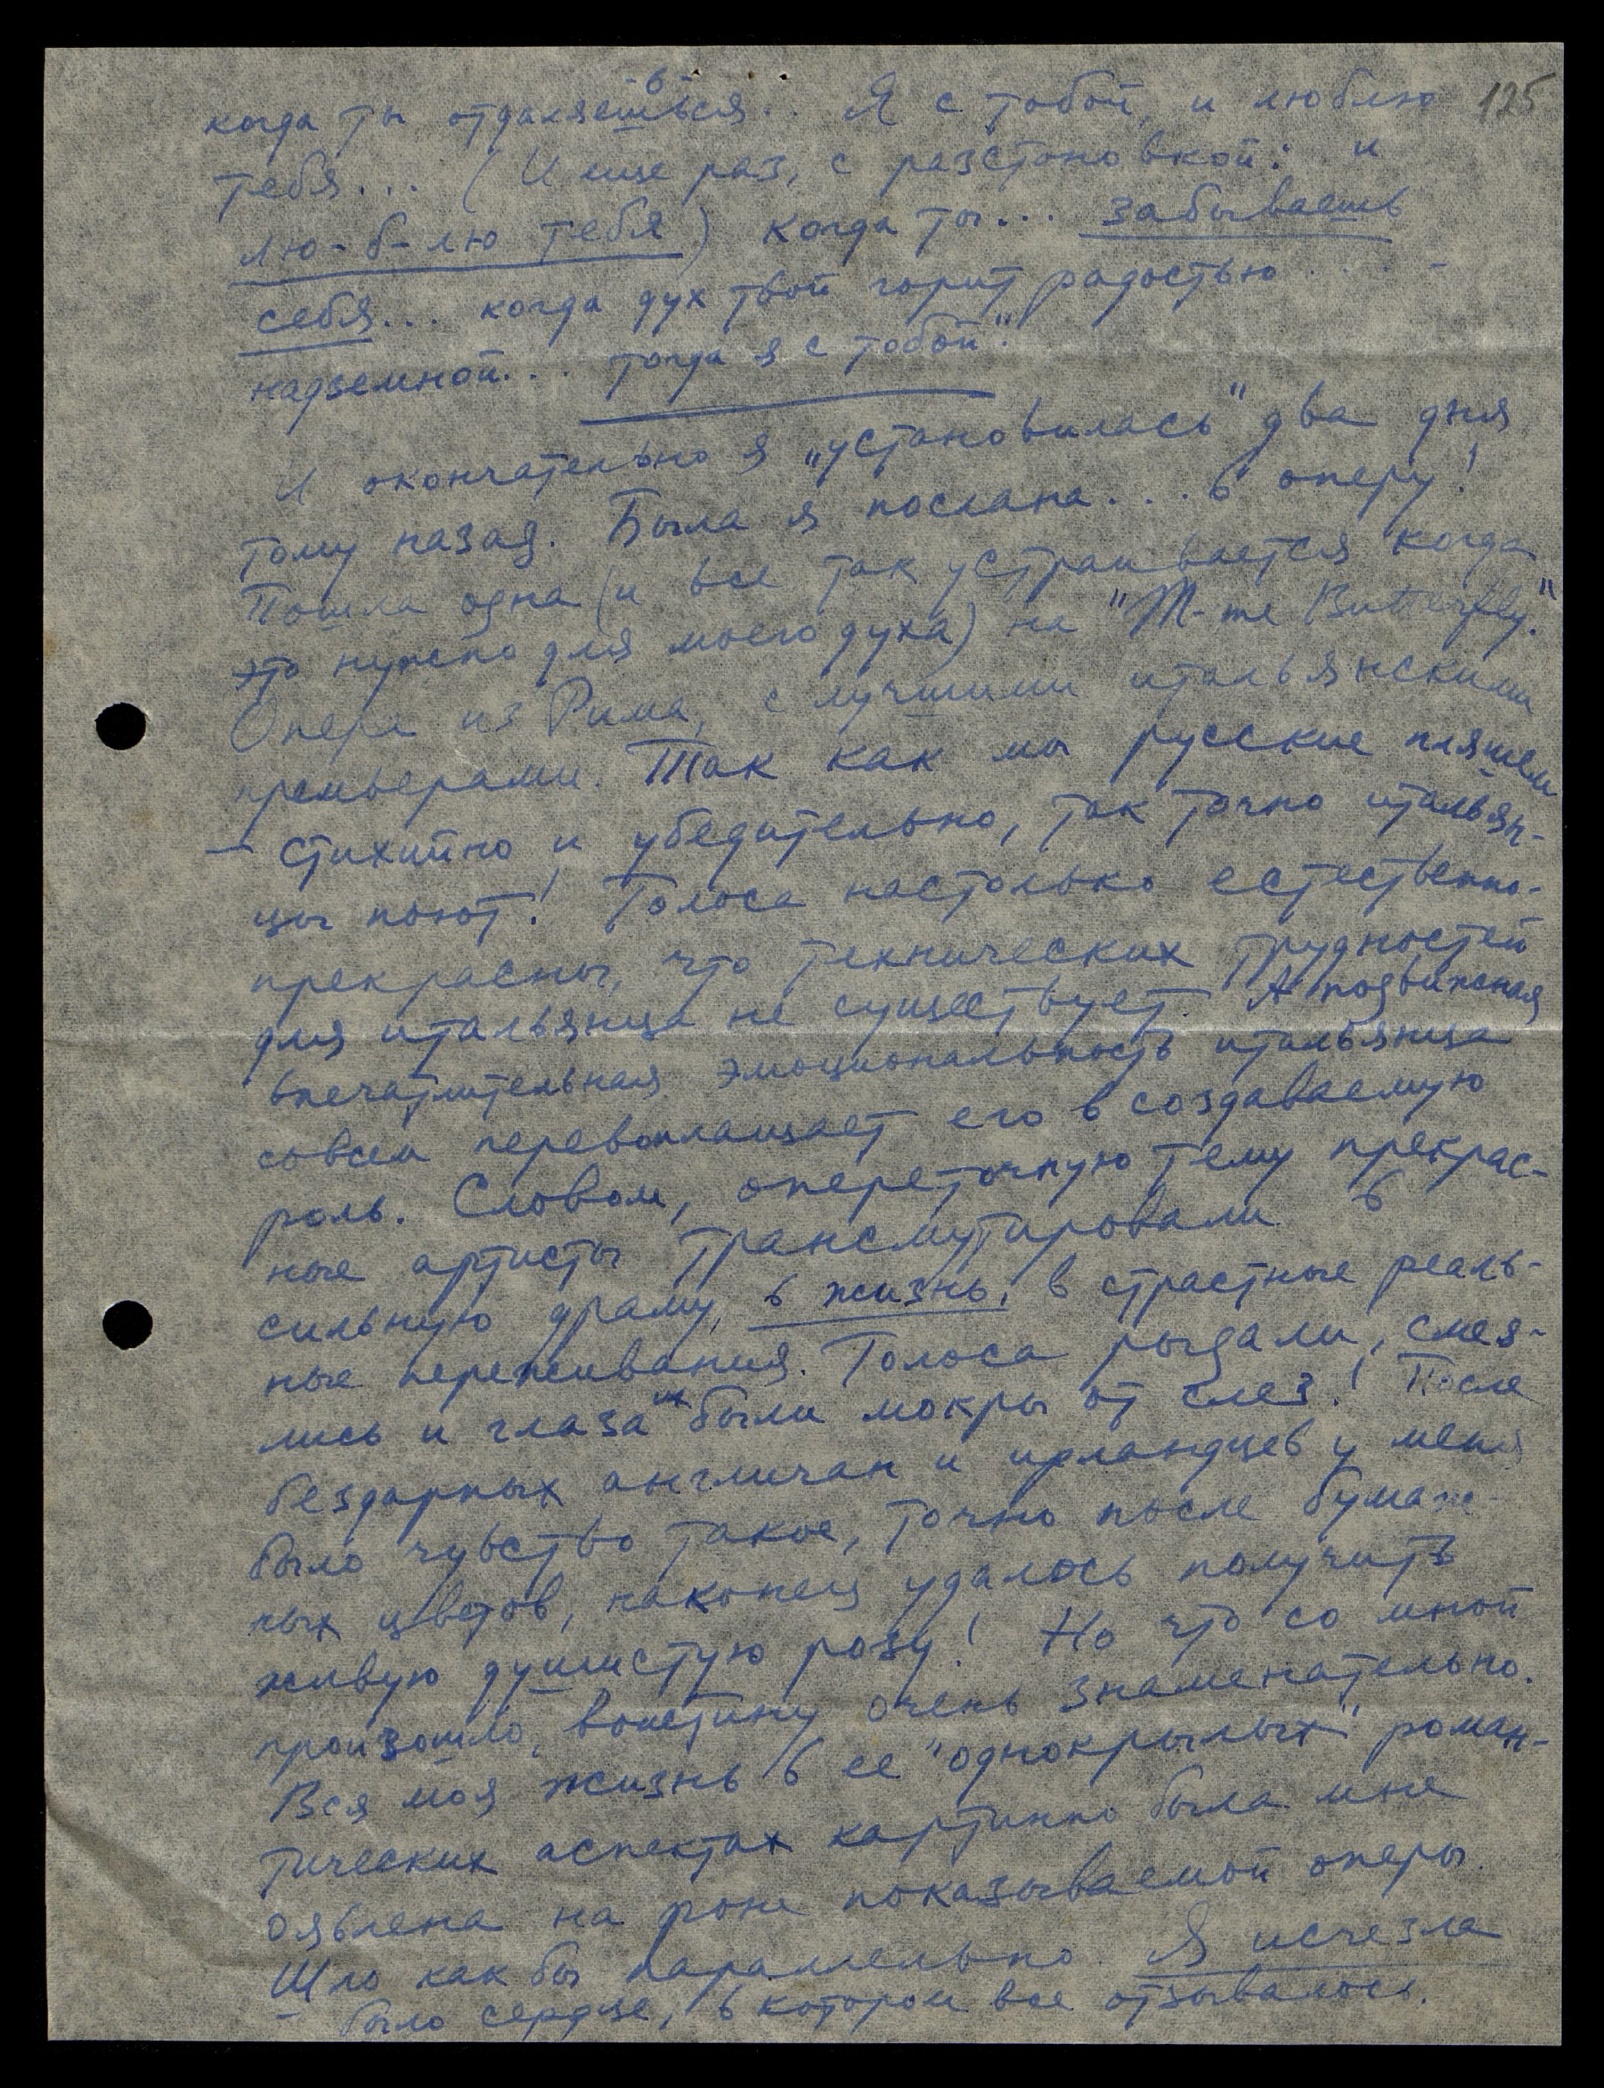 -6-
125
когда ты отдаляешься... Я с тобой, и люблю
тебя... (И еще раз, с разстановкой: и
лю-б-лю тебя) когда ты... забываешь
себя... когда дух твой горит радостью
надземной... тогда я с тобой."
И окончательно я "установилась" два дня
тому назад. Была я послана... в оперу!
Пошла одна (и все так устраивается когда
это нужно для моего духа) на "M-me Butterfly."
Опера из Рима, с лучшими итальянскими
премьерами. Так как мы русские пляшем
- стихийно и убедительно, так точно итальян-
цы поют! Голоса настолько естественно-
прекрасны, что технических трудностей
для итальянца не существует. А подвижная
впечатлительная эмоциональность итальянца
совсем перевоплащает его в создаваемую
роль. Словом, опереточную тему прекрас-
ные артисты трансмутировали в
сильную драму, в жизнь, в страстные реаль-
ные переживания. Голоса рыдали, смея-
лись и глаза их были мокры от слез! После
бездарных англичан и ирландцев у меня
было чувство такое, точно после бумаж-
ных цветов, наконец удалось получить
живую душистую розу! Но что со мной
произошло, воистину очень знаменательно.
Вся моя жизнь в ее "однокрылых" роман-
тических аспектах картинно была мне
оявлена на фоне показываемой оперы.
Шло как бы параллельно. Я исчезла
- было сердце, в котором все отзывалось.